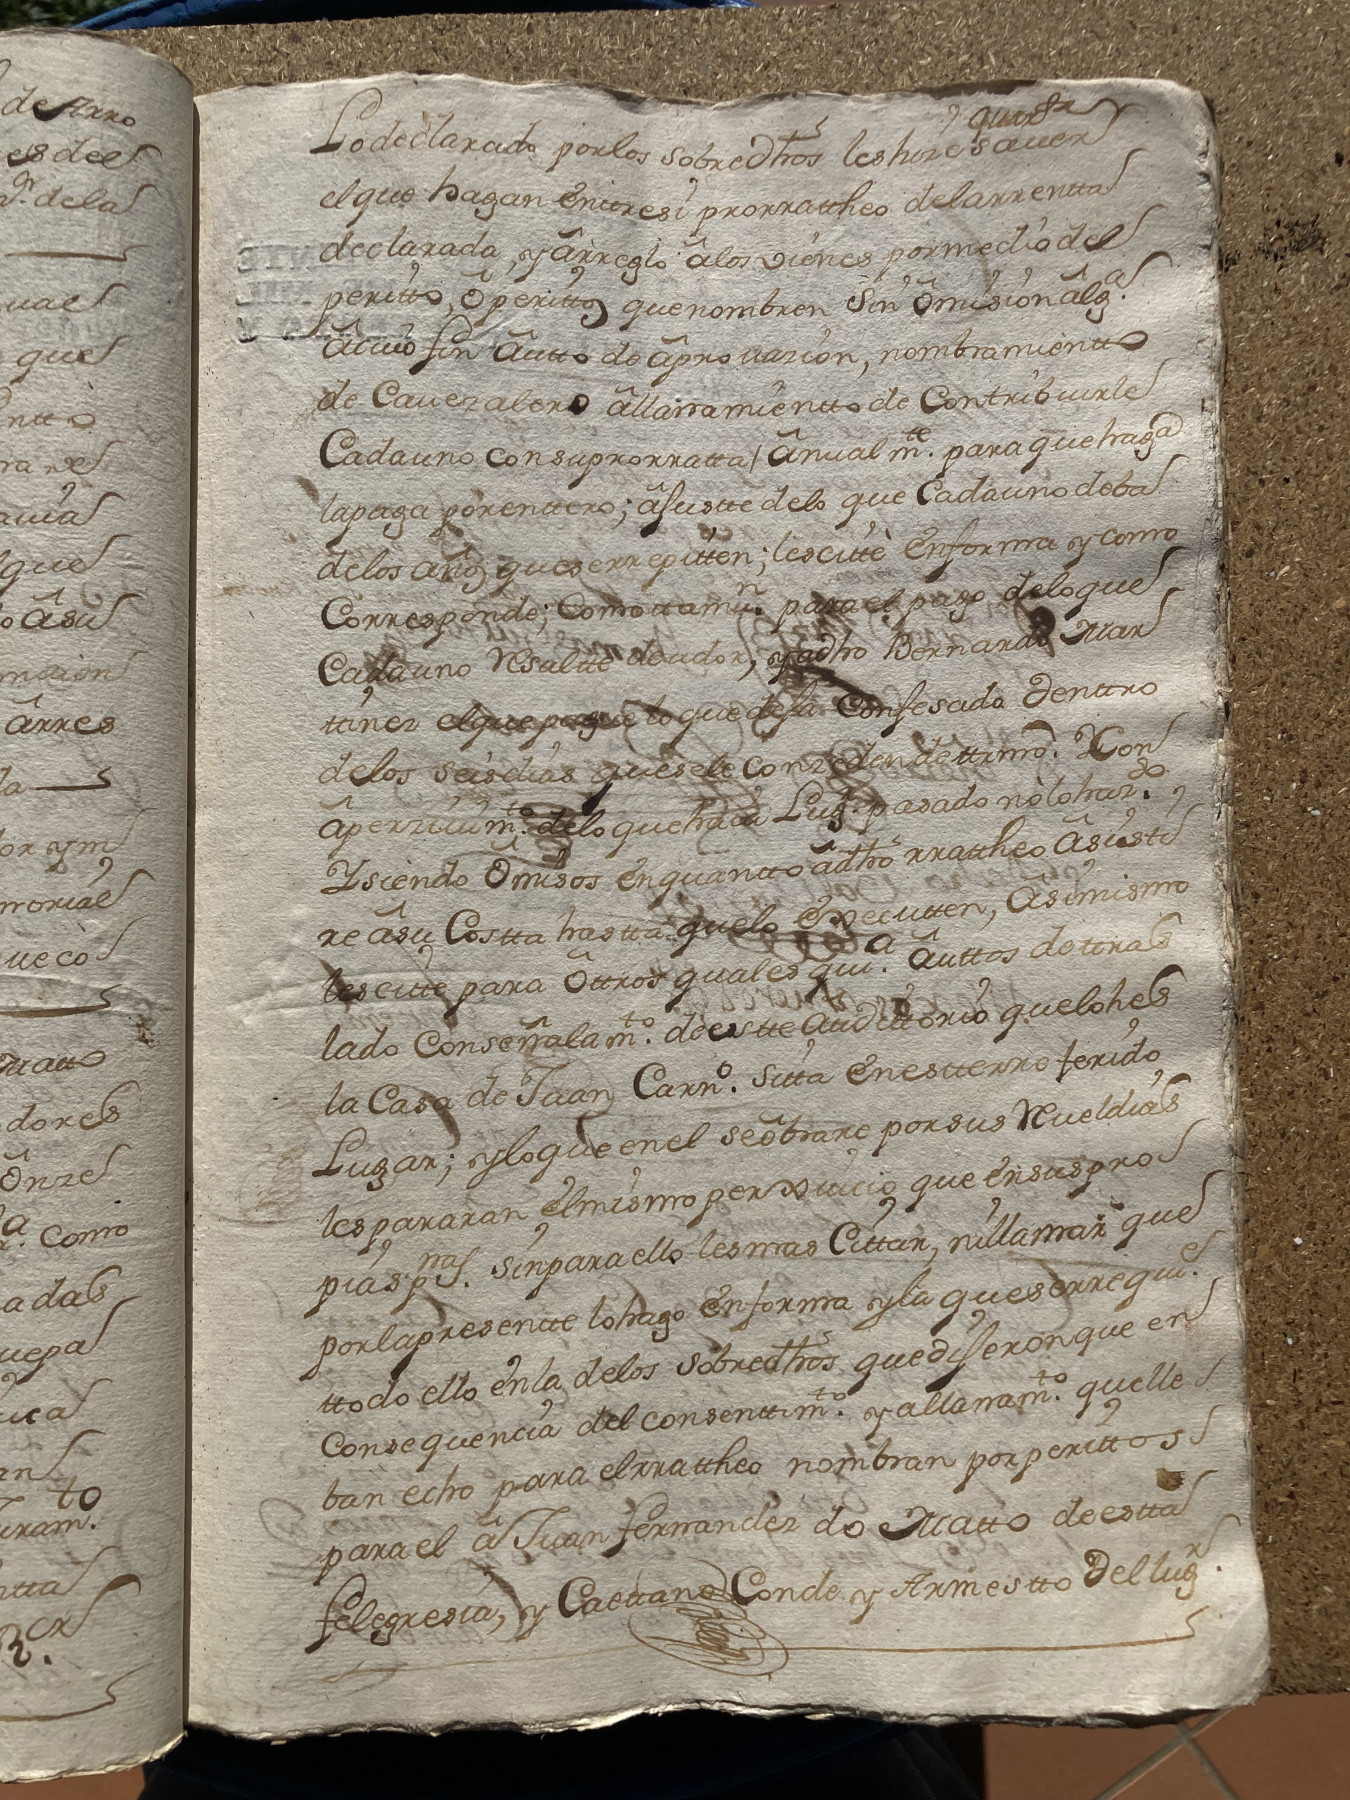 de Arro
es del
de la
que
ntto
avia
que
o âsu
ârres
da
or y m
morial
ue co
Matto
dores
Ônze
como
adas
uepa
uca
an
uram.to
ntta
quartr
Lo declarado por los sobredhos les hize saver
el que hagan enttre si prorrattheo de la rrentta
declarada, y ârreglo âlos vienes por medio del
peritto, ô perittos que nombren sin ômision âlg.a
âcuio fin âutto de âprovazion, nombramientto
de Cavezalero âllanamientto de Contribuirle
Cada uno con su prorratta / ânualm.te para que haga
la paga por enttero; âjustte de lo que Cada uno deba
de los años que se rrepitten; les citte en forma y como
Corresponde; Como ttamu.n para el pago de lo que
Cada uno Resultte deudor, y a dho Bernardo Mar
tinez el que pague lo que deja Confesado denttro
de los seis dias que se le conzeden de ttermo. Con
âperzivim.to de lo que havia Lug.r pasado no lo haz.do
Y siendo Ômisos en quantto âdho rrattheo âsisti
re âsu Costta hastta que lo êxecutten, Âsimismo
les citte para ôttros quales qui.a âuttos de ttras
lado Con señalam.to de estte Audittorio que lo hes
la Casa de Juan Carn.o sitta en estte rreferido
Lugar; y lo que en el se ôbrare por sus Nueldias
les pararan el mismo perxuicio que en sus pro
pias p.nas sin para ello les mas Cittar, ni llamar que
por la presentte lo hago en forma y la que se rrequi.e
ttodo ello en la de los sobredhos que dijeron que en
Consequencia del consenttim.to y allanam.to que lle
ban echo para el rrattheo nombran por perittos
para el â Juan fernandez do Matto de estta
felegresia, y Caettano Conde y Armestto del lug.r